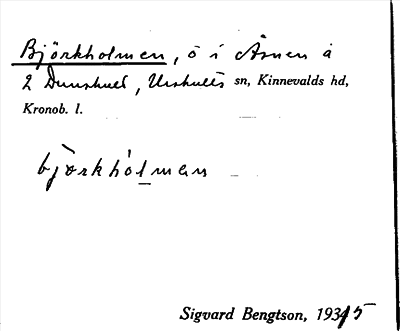 Björkholmen, ö i Åsnen å
2 Dunshult, Urshults sn, Kinnevalds hd,
Kronob. l.
björkholman
Sigvard Bengtson, 1935